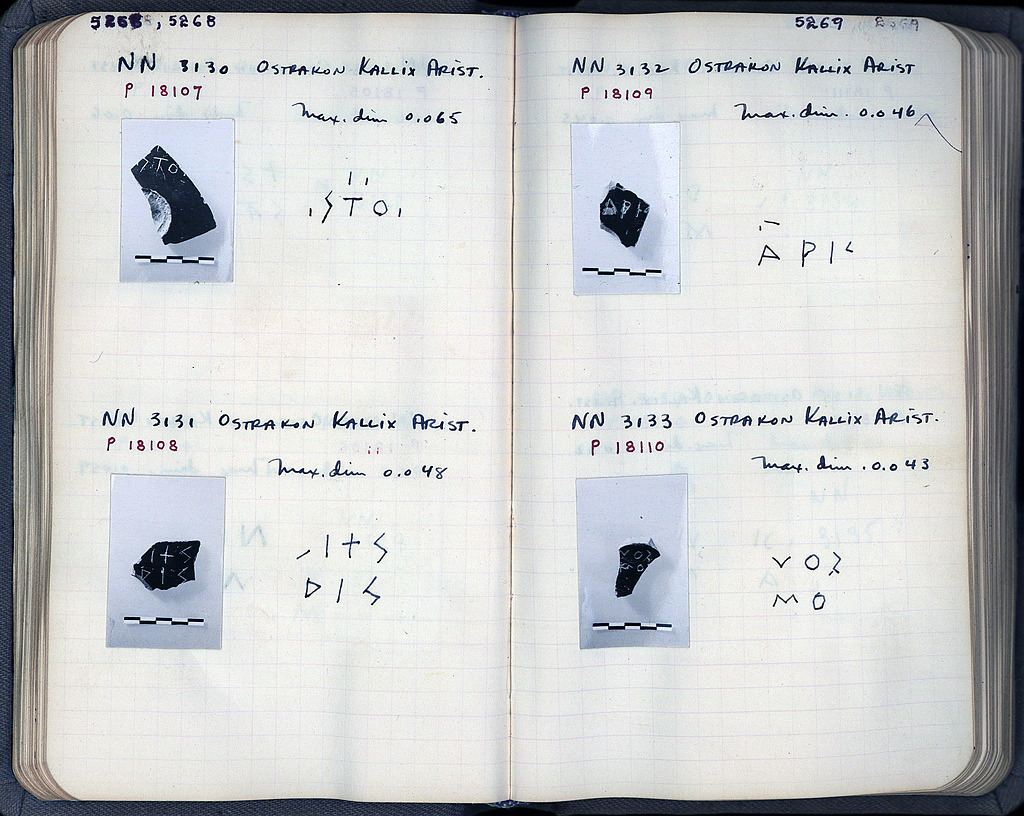 5268
NN 3130 OSTRAKON KALLIX ARIST.
P 18107
Max. dim 0.065
STO
NN 3131 OSTRAKON KALLIX ARIST.
P 18108
Max. dim 0.048
5269
NN 3132 OSTRAKON KALLIX ARIST
P 18109
Max. dim. 0.046
ΑΡΙ
NN 3133 OSTRAKON KALLIX ARIST.
P 18110
Max. dim. 0.043